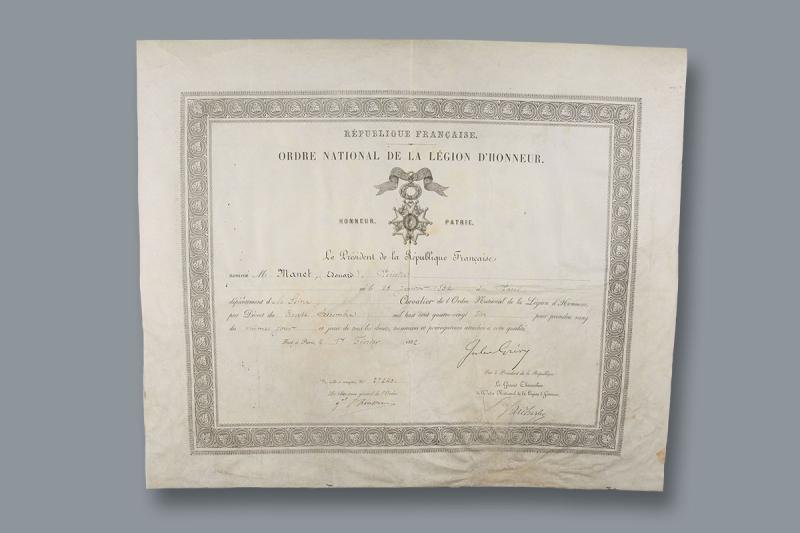 RÉPUBLIQUE FRANÇAISE.
ORDRE NATIONAL DE LA LÉGION D'HONNEUR.
HONNEUR. PATRIE.
Le Président de la République Française
nomme M. Manet (Edouard), Peintre
né le 23 janvier 1832 à Paris
département de la Seine Chevalier de l'Ordre National de la Légion d'Honneur,
par Décret du trente Décembre mil huit cent quatre-vingt pour prendre rang
du même jour et jouir de tous les droits, honneurs et prérogatives attachés à cette qualité.
Fait à Paris, le 1er Février 1882
Jules Grévy
Par le Président de la République
Le Grand Chancelier
de l'Ordre National de la Légion d'Honneur,
Vu, No
Le Secrétaire général de l'Ordre
Faidherbe